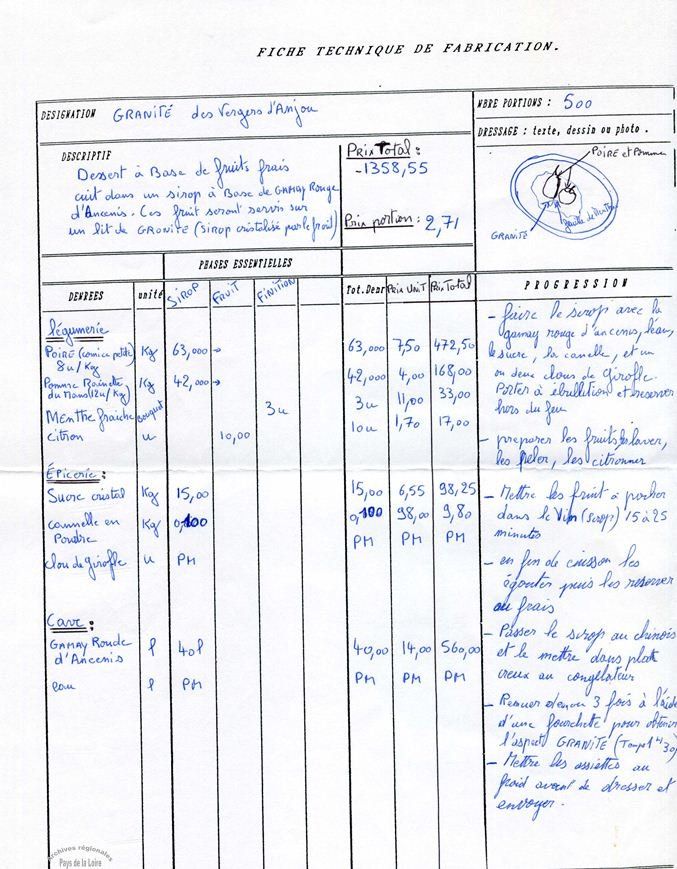 FICHE TECHNIQUE DE FABRICATION.
DESIGNATION GRANITÉ des Vergers d'Anjou
NBRE PORTIONS : 500
DRESSAGE : texte, dessin ou photo .
POIRE et Pomme
GRANITÉ
DESCRIPTIF
Dessert à Base de fruits frais
cuit dans un sirop à Base de GAMAY Rouge
d'Ancenis. Ces fruit seront servis sur
un lit de GRANITÉ (sirop cristalisé par le froid)
Prix Total :
-1358,55
Prix portion : 2,71
PHASES ESSENTIELLES
DENREES unité SIROP FRUIT FINITION Tot.Denr Prix UNIT Prix Total PROGRESSION
légumerie
POIRE (comice petite) Kg 63,000 → 63,000 7,50 472,50
8u/Kg
Pomme Reinette Kg 42,000 → 42,000 4,00 168,00
du Mans (12u/Kg)
Menthe fraiche Bouquet 3u 3u 11,00 33,00
citron u 10,00 10u 1,70 17,00
Épicerie :
Sucre cristal Kg 15,00 15,00 6,55 98,25
cannelle en Kg 0,100 0,100 98,00 9,80
Poudre
clou de Girofle u PM PM PM PM
Cave :
GAMAY Rouge l 40l 40,00 14,00 560,00
d'Ancenis
eau l PM PM PM PM
- faire le sirop avec la
gamay rouge d'ancenis, l'eau,
le sucre, la canelle, et un
ou deux clous de Girofle.
Porter à ébullition et reserver
hors du feu
- preparer les fruits, les laver,
les peler, les citronner
- Mettre les fruit à pocher
dans le Vin (sirop) 15 à 25
minutes
- en fin de cuisson les
égouter puis les reserver
au frais
- Passer le sirop au chinois
et le mettre dans plats
creux au congelateur
- Remuer 3 fois à l'aide
d'une fourchette pour obtenir
l'aspect GRANITÉ
- Mettre les assiettes au
froid avant de dresser et
envoyer.
Archives régionales
Pays de la Loire